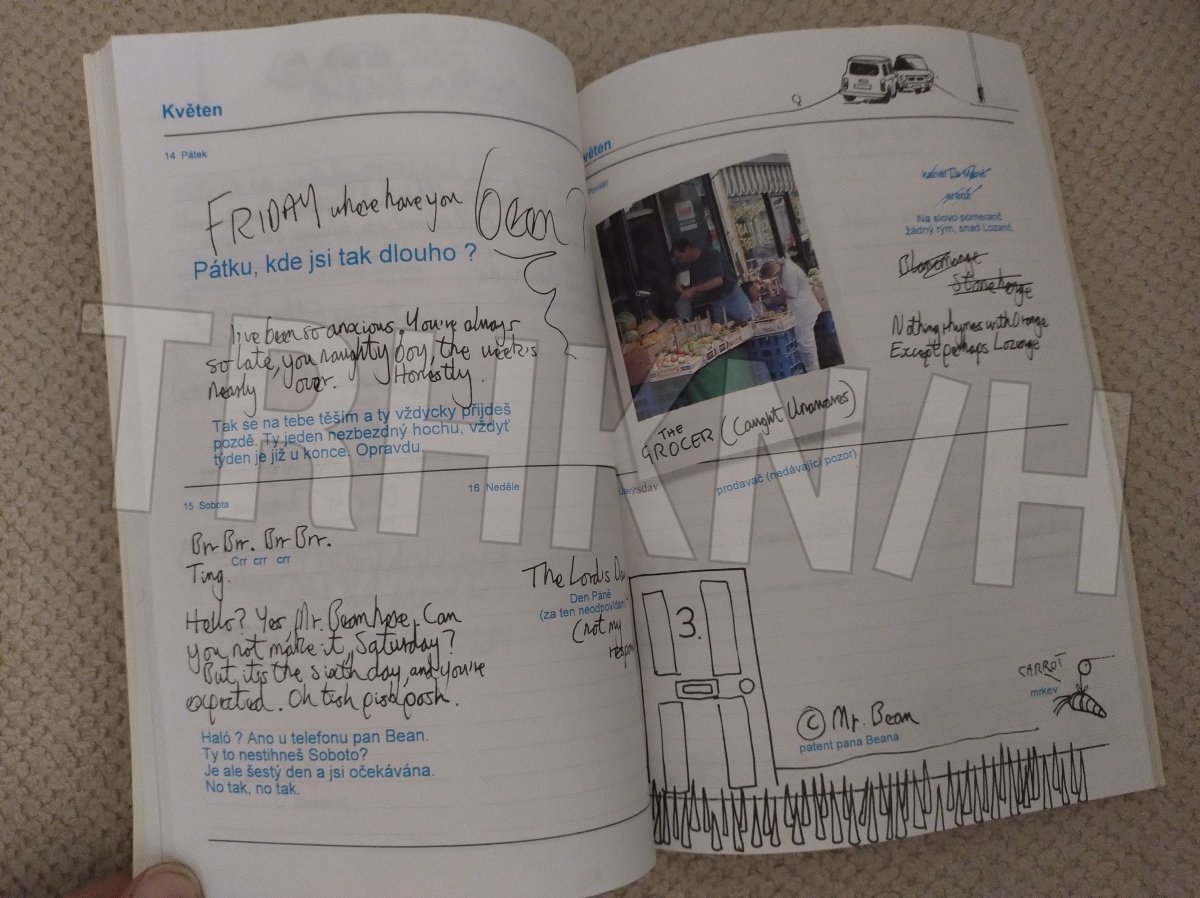 Květen
14 Pátek
FRIDAY where have you been?
Pátku, kde jsi tak dlouho ?
I've been so anxious. You're always
so late, you naughty boy, the week's
nearly over. Honestly.
Tak se na tebe těším a ty vždycky přijdeš
pozdě. Ty jeden nezbezdný hochu, vždyť
týden je již u konce. Opravdu.
15 Sobota
16 Neděle
Brr Brr. Brr Brr.
Crr crr crr
Ting.
Hello? Yes Mr. Bean here. Can
you not make it, Saturday?
But it's the sixth day, and you're
expected. Oh tish pish posh.
Haló ? Ano u telefonu pan Bean.
Ty to nestihneš Soboto?
Je ale šestý den a jsi očekávána.
No tak, no tak.
The Lord's
Den Páně
(za ten neodpovídám)
(not my
Na slovo pomeranč
žádný rým, snad Lozanč.
Blancmange
Stonehenge
Nothing rhymes with Orange
Except perhaps Lozenge
THE
GROCER (Caught Unawares)
prodavač (nedávající pozor)
3.
© Mr. Bean
patent pana Beana
CARROT
mrkev
TRHKNIH